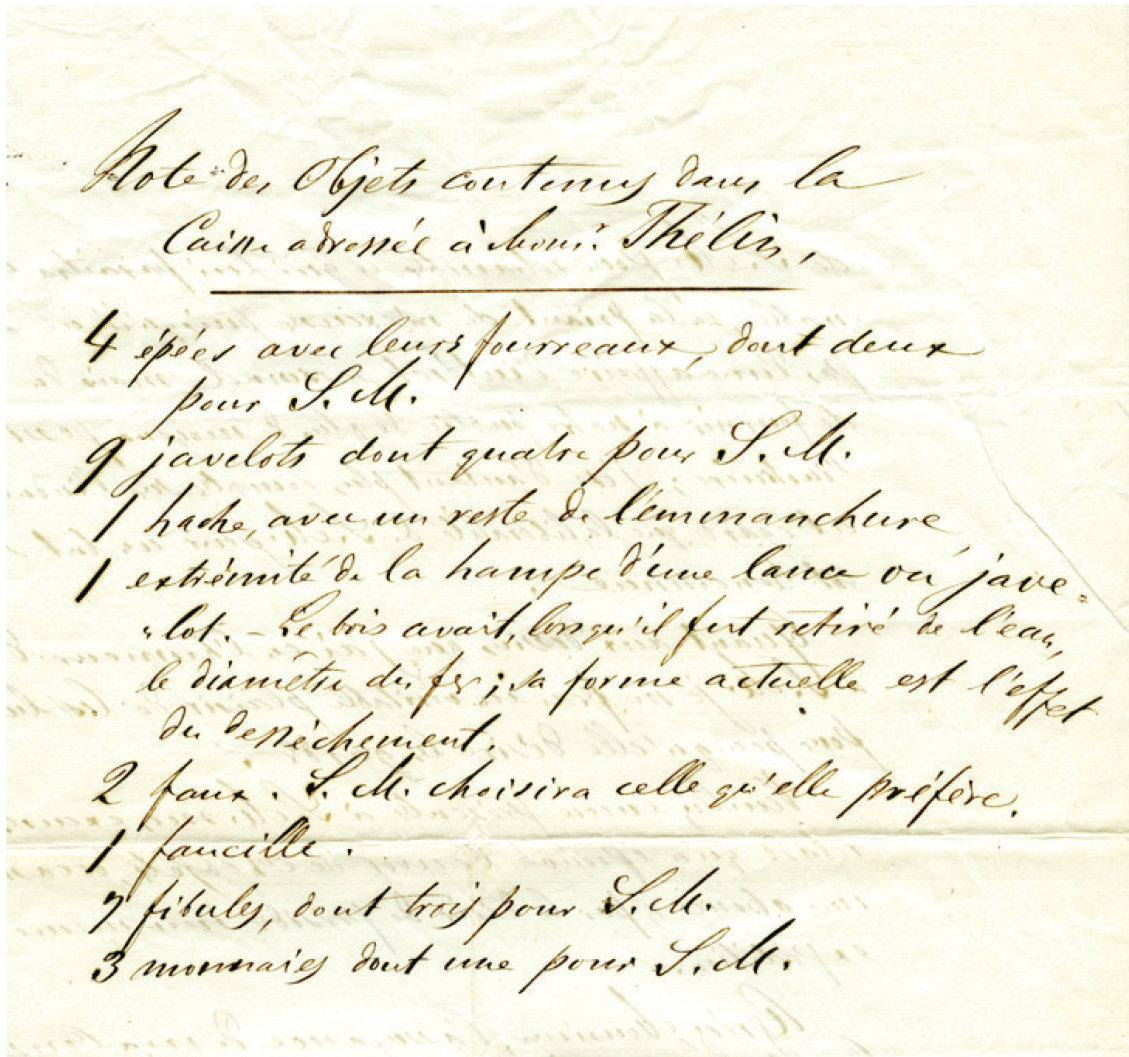 Note des Objets contenus dans la
Caisse adressée à Monsr. Thélin,
4 épées avec leurs fourreaux, dont deux
pour S. M.
9 javelots dont quatre pour S. M.
1 hache, avec un reste de l'emmanchure
1 extrémité de la hampe d'une lance ou jave-
-lot. - Le bois avait, lorsqu'il fut retiré de l'eau,
le diamètre du fer; sa forme actuelle est l'effet
du dessèchement.
2 faux. S. M. choisira celle qu'elle préfère.
1 faucille.
7 fibules, dont trois pour S. M.
3 monnaies dont une pour S. M.